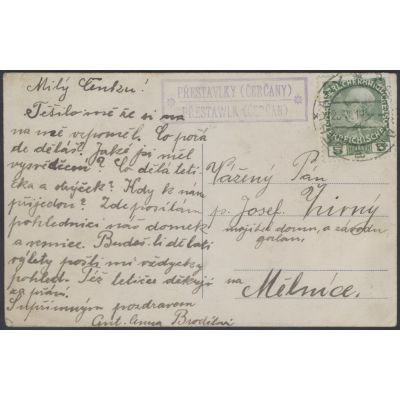 Milý Čenku!
Těšilo mě že si na
na mě vzpomněl. Co pořá
de děláš? Jaké jsi měl
vysvědčení? Co dělá teti-
čka a strýček? Kdy k nám
přijedou? Zde posílám
pohlednici náš domek
a vesnice. Budeš-li dělati
výlety pošli mi vždycky
pohled. Též letičce děkuji
za přání.
S upřímným pozdravem
Ant. Anna
PŘESTAVLKY (ČERČANY)
PŘESTAWLK (ČERČAN)
Vážený Pán
p. Josef Žirný
majitel domu, a závodu
na
Mělníce.